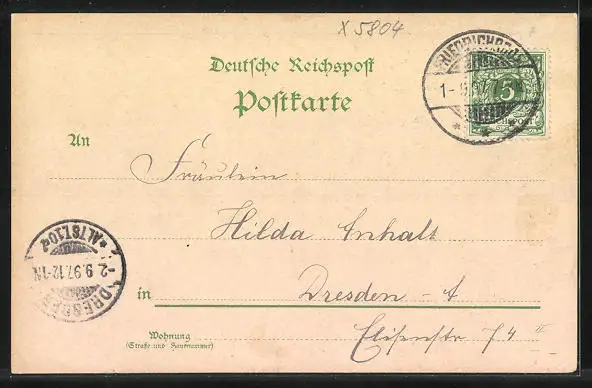 X 5804
Deutsche Reichspost
Postkarte
An
Fräulein
Hilda Anhalt
in Dresden - A
Wohnung
(Straße und Hausnummer)
Elisenstr 74 II
FRIEDRICHR
1-9 97
5
REICHSPOST
* ALTST. 10 *
2.9.97.12-1N
DRESDEN